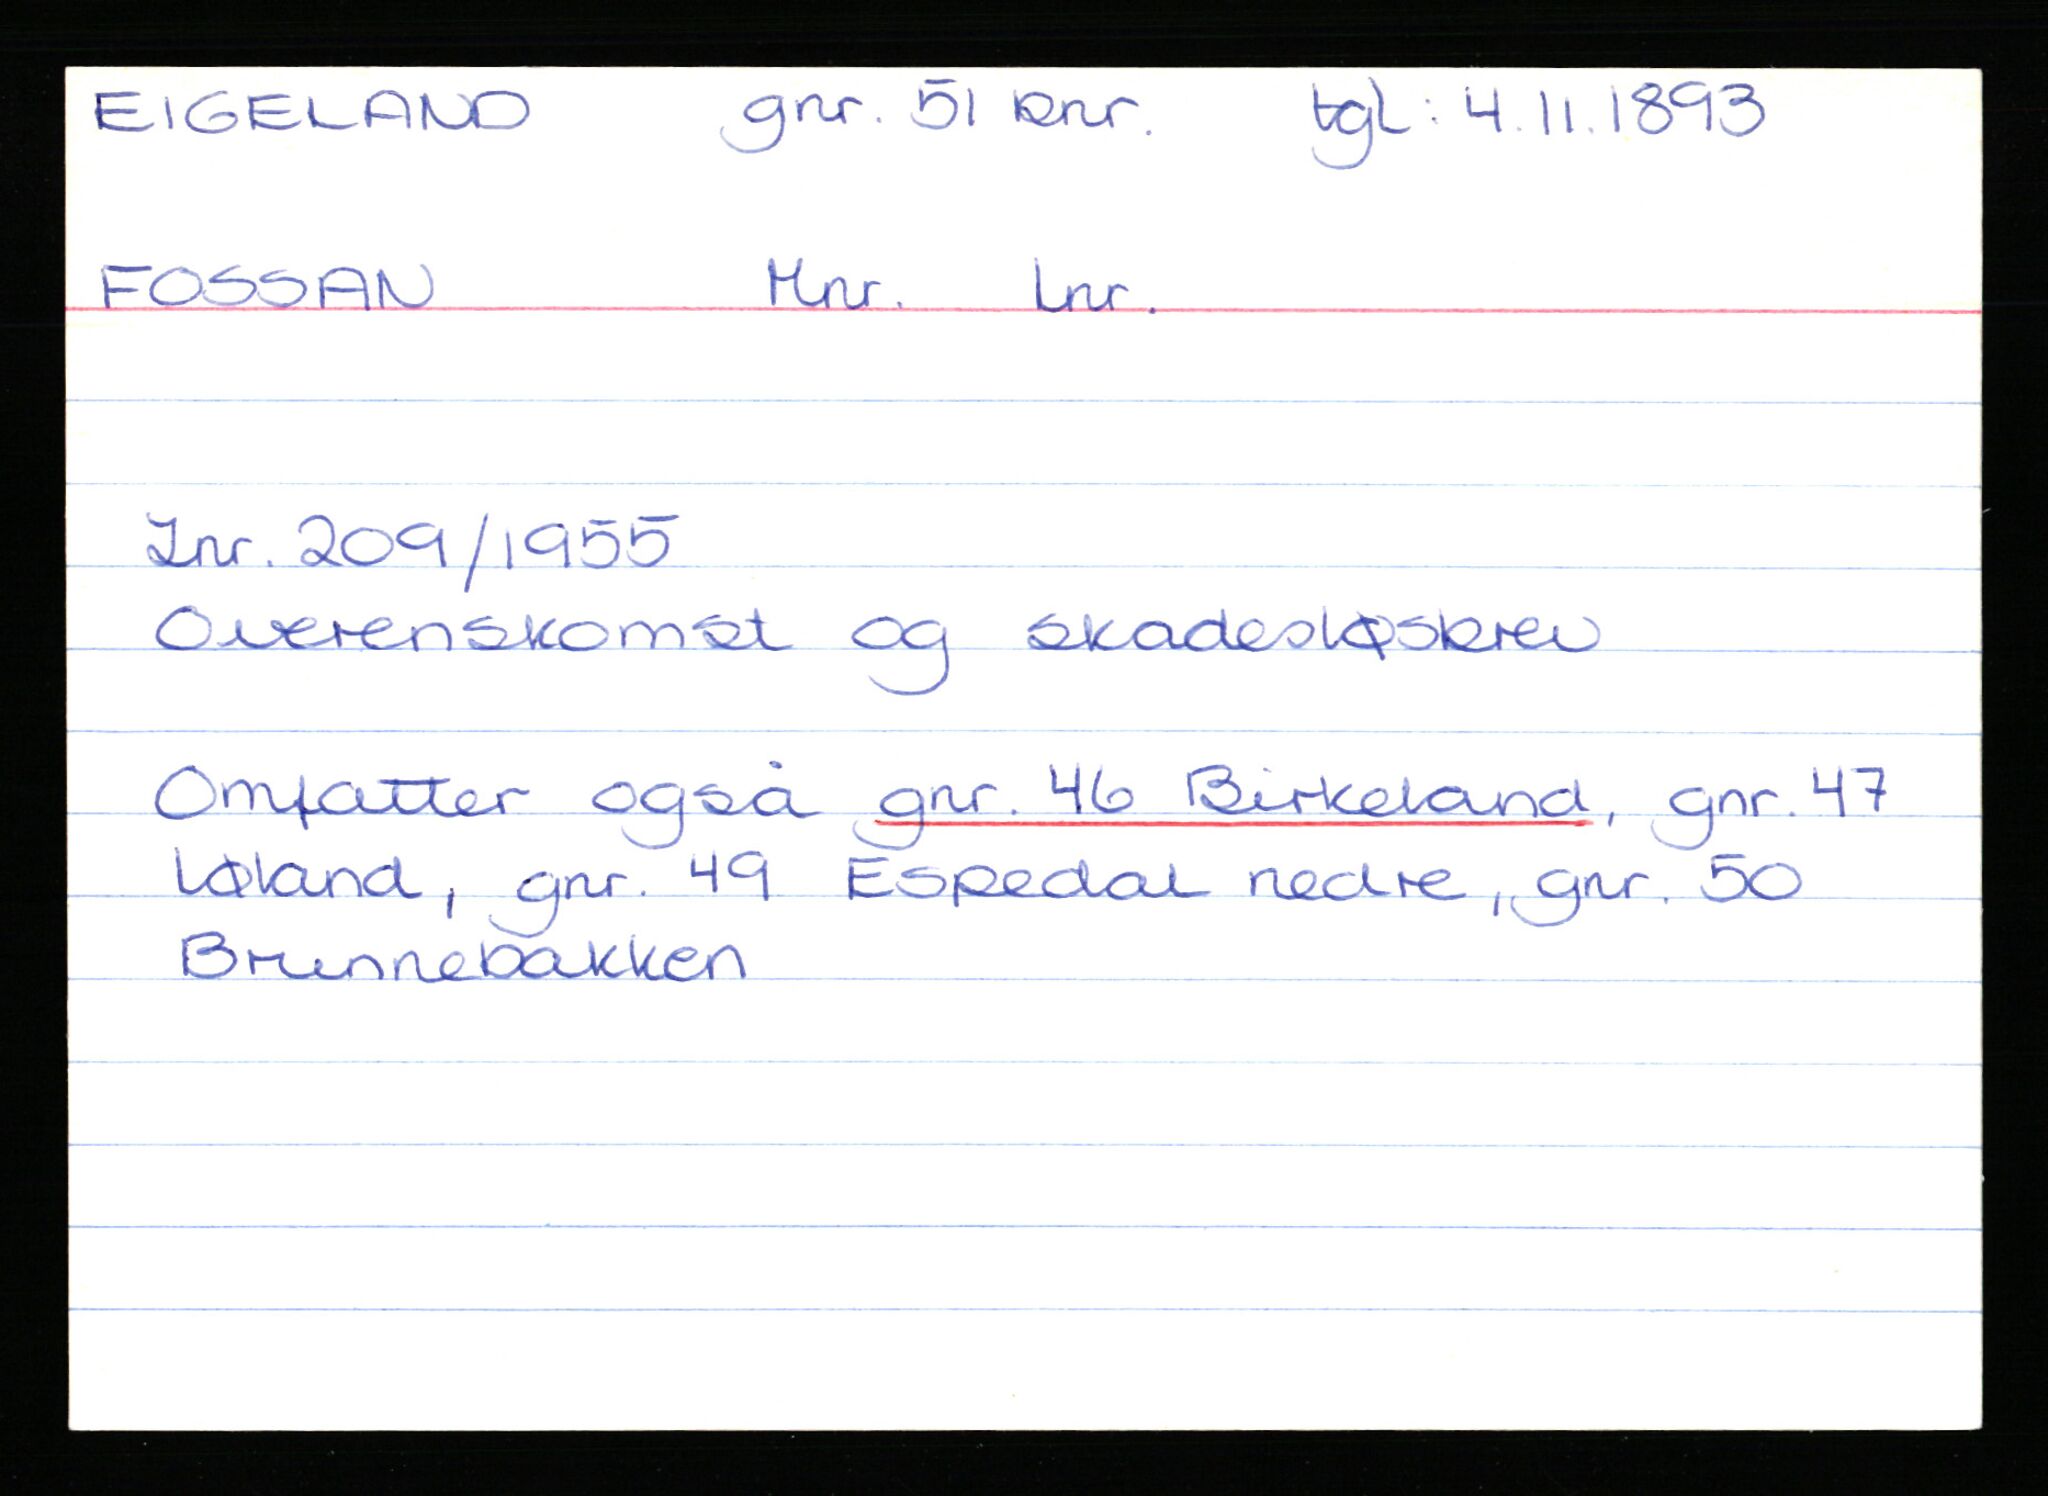 EIGELAND gnr. 51 bnr. tgl: 4.11.1893
FOSSAN Mnr. Lnr.
Jnr. 209/1955
Overenskomst og skadesløsbrev
Omfatter også gnr. 46 Birkeland, gnr. 47
Løland, gnr. 49 Espedal nedre, gnr. 50
Brunnebakken